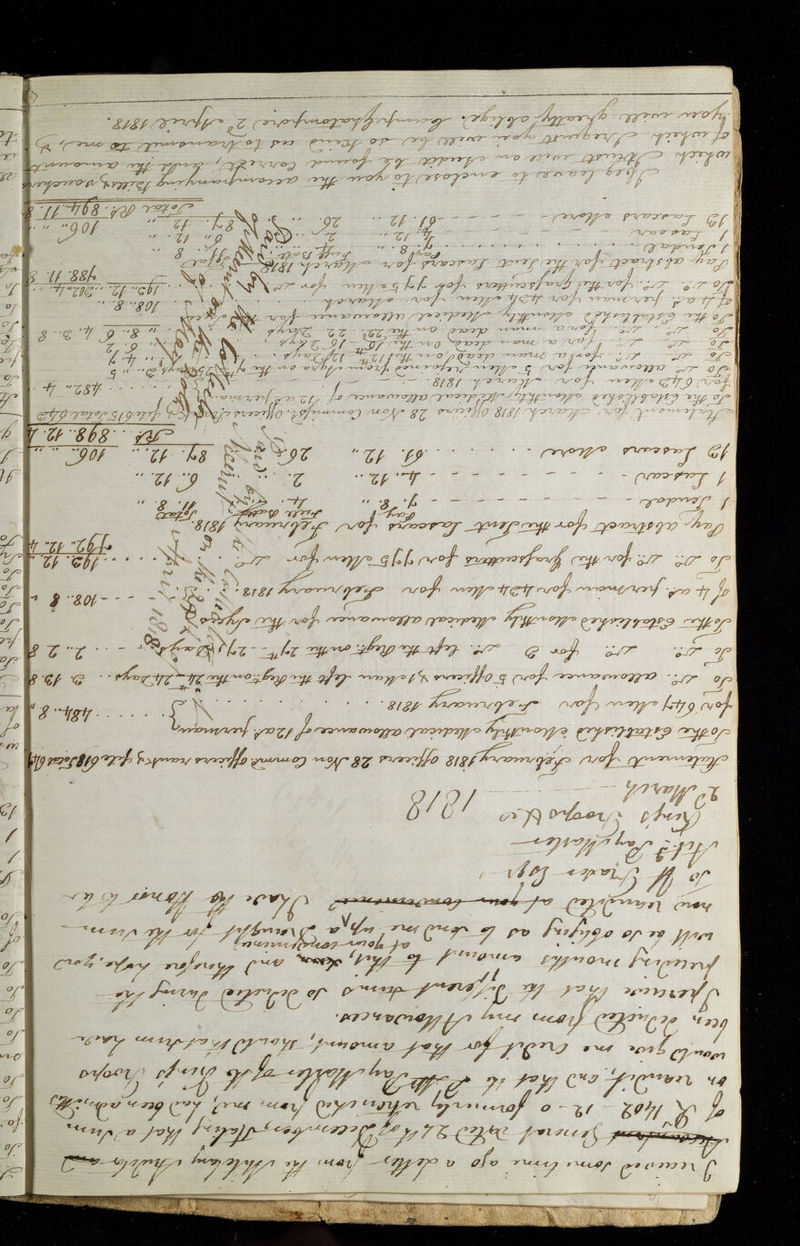 I received some time ago a letter from the Military Auditor and
Accountant General dated 24th of December, Stating that a Sum
of Rs 1402 - 12 - 0 formerly retrenched from me, had been admitted
on reaudit, and that the Pay Master of the King's Troops
would give me Credit for that amount, should that sum have
been deducted from my Allowances.
I perceive that the different sums so deducted during the
preceding months amount to this, and therefore hope, you
will be so obliging as to send me up a Draught for the Sum
at your convenience
now reaudited at your convenience I have the Honor to be
To W. Trader Esqr.
Actg. Pay Master
King's Troops
2d March 1818
Statement for February 1818 officers 28 Non Commd. officers rank & file 618 Total 647
To the Established Monthly Medical allowance of 12 as. per man
for 647 Men for February 1818 484.. 8 ..
To Do. allowance for 5 officers & Men left the Regt. on the 24th - 24 days 3.. 13.. 8
To Do. Do. for 3 Do. left the Regt. on the 27th - 27 days 2.. 2.. 8
To the Established Monthly Medical allowance for the Syces
of 4 as. per man for 434 Men for February 1818 108.. 8 ..
To Do. Do. for the Grasscutters for 775 Men for Do. 193.. 12 ..
792.. 12.. 4
Pay abstract for the Tent Lascars for February 1818.
Pay Full Batta Total
1 Tendal 7.. 8 .. 4 .. 11.. 8 ..
1 Lascar 4.. 12 .. 2 .. 6.. 12 ..
13 Lascars More 61.. 12 .. 26 .. 87.. 12 .. 106 ..
Rs 898.. 12.. 4
Paid by Collector
April 1818
Statement for March 1818 officers 28 Non Commiss. officers rank & file 615 Total 643
To the Established Monthly Medical allowance of 12 as. per man
for 643 Men for March 1818 482.. 4 ..
To Do. allowance for 5 Men rejoined from Agra on the
To Do. Do. for a man dead on the 12th 12 Days
To Do. Do. for a man dead on the 16th 16 Days
To Do. Do. for a man dead on the 22d 22 Days .. 8.. 6 4.. 3.. 8
To the Established Monthly Medical allowance for the Syces
of 4 as. per man for 434 Men for March 108.. 8 ..
To Do. Do. for the Grasscutters for 775 Men for Do. 193.. 12 .. 302.. 4 ..
788.. 11.. 8
Pay abstract for the Tent Lascars for March 1818
Pay Full Batta Total
1 Tendal 7.. 8 .. 4 .. 11.. 8
1 Lascar 4.. 12 .. 2 .. 6.. 12 ..
13 Lascars More 61.. 12 .. 26 .. 87.. 12 .. 106 ..
Total Rs. 894.. 11.. 8
Paid by the Collector
I beg leave to enclose to you the accompanying Bills & vouchers
which I trust will on Audit be found correct, and the amount
of which I request you will be so kind as to transmit to me, &
you will greatly oblige. Camp Ghatompore 2d April 1818.